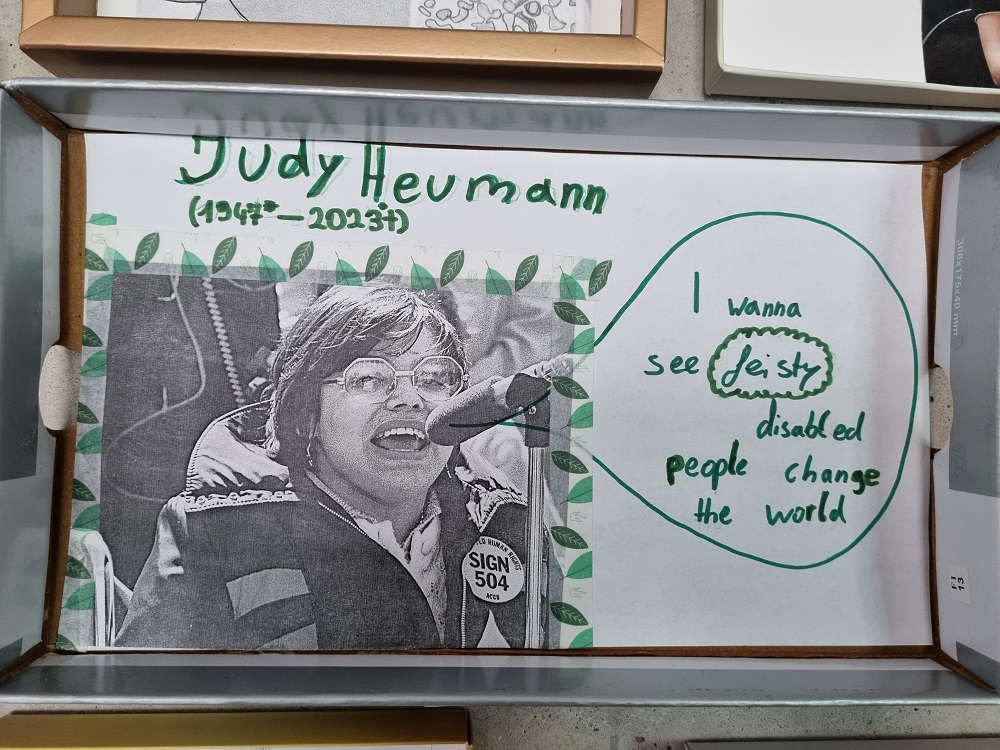 Judy Heumann
(1947*—2023†)
I wanna
see feisty
disabled
people change
the world
HUMAN RIGHTS
SIGN
504
ACCD
308x175x40 mm
13